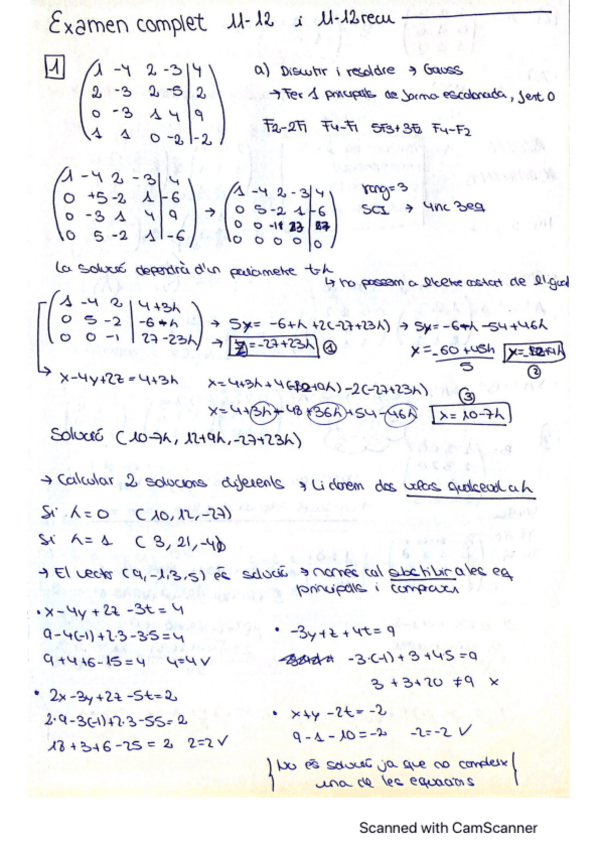 Examen complet 11-12 i 11-12 recu
1
1 -4 2 -3 | 4
2 -3 2 -5 | 2
0 -3 1 4 | 9
1 1 0 -2 | -2
a) Discutir i resoldre → Gauss
→ Fer 1 principals de forma escalonada, fent 0
F2-2F1 F4-F1 5F3+3F2 F4-F2
1 -4 2 -3 | 4
0 +5 -2 1 | -6
0 -3 1 4 | 9
0 5 -2 1 | -6
→
1 -4 2 -3 | 4
0 5 -2 1 | -6
0 0 -1 23 | 27
0 0 0 0 | 0
rang=3
SCI → 4inc 3eq
La solució dependrà d'un paràmetre t=λ
↳ ho passem a l'altre costat de l'igual
1 -4 2 | 4+3λ
0 5 -2 | -6-λ
0 0 -1 | 27-23λ
→ 5y = -6+λ+2(-27+23λ) → 5y = -6-λ-54+46λ
→ z=-27+23λ ①
y = -60+45λ / 5
②
→ x-4y+2z = 4+3λ
x = 4+3λ+4(-12+9λ)-2(-27+23λ)
③
x = 4+3λ-48+36λ+54-46λ x = 10-7λ
Solució (10-7λ, 12+9λ, -27+23λ)
→ Calcular 2 solucions diferents → Li donem dos valors qualsevol a λ
Si λ=0 (10, 12, -27)
Si λ=1 (3, 21, -4)
→ El vector (9, -1, 3, 5) és solució → només cal substituir a les eq
principals i comprovar
• x-4y+2z-3t = 4
9-4(-1)+2·3-3·5 = 4
9+4+6-15 = 4 4=4 ✓
• 2x-3y+2z-5t = 2
2·9-3(-1)+2·3-5·5 = 2
18+3+6-25 = 2 2=2 ✓
• -3y+z+4t = 9
-3·(-1)+3+4·5 = 9
3+3+20 ≠ 9 x
• x+y-2t = -2
9-1-10 = -2 -2=-2 ✓
No és solució ja que no compleix
una de les equacions
Scanned with CamScanner